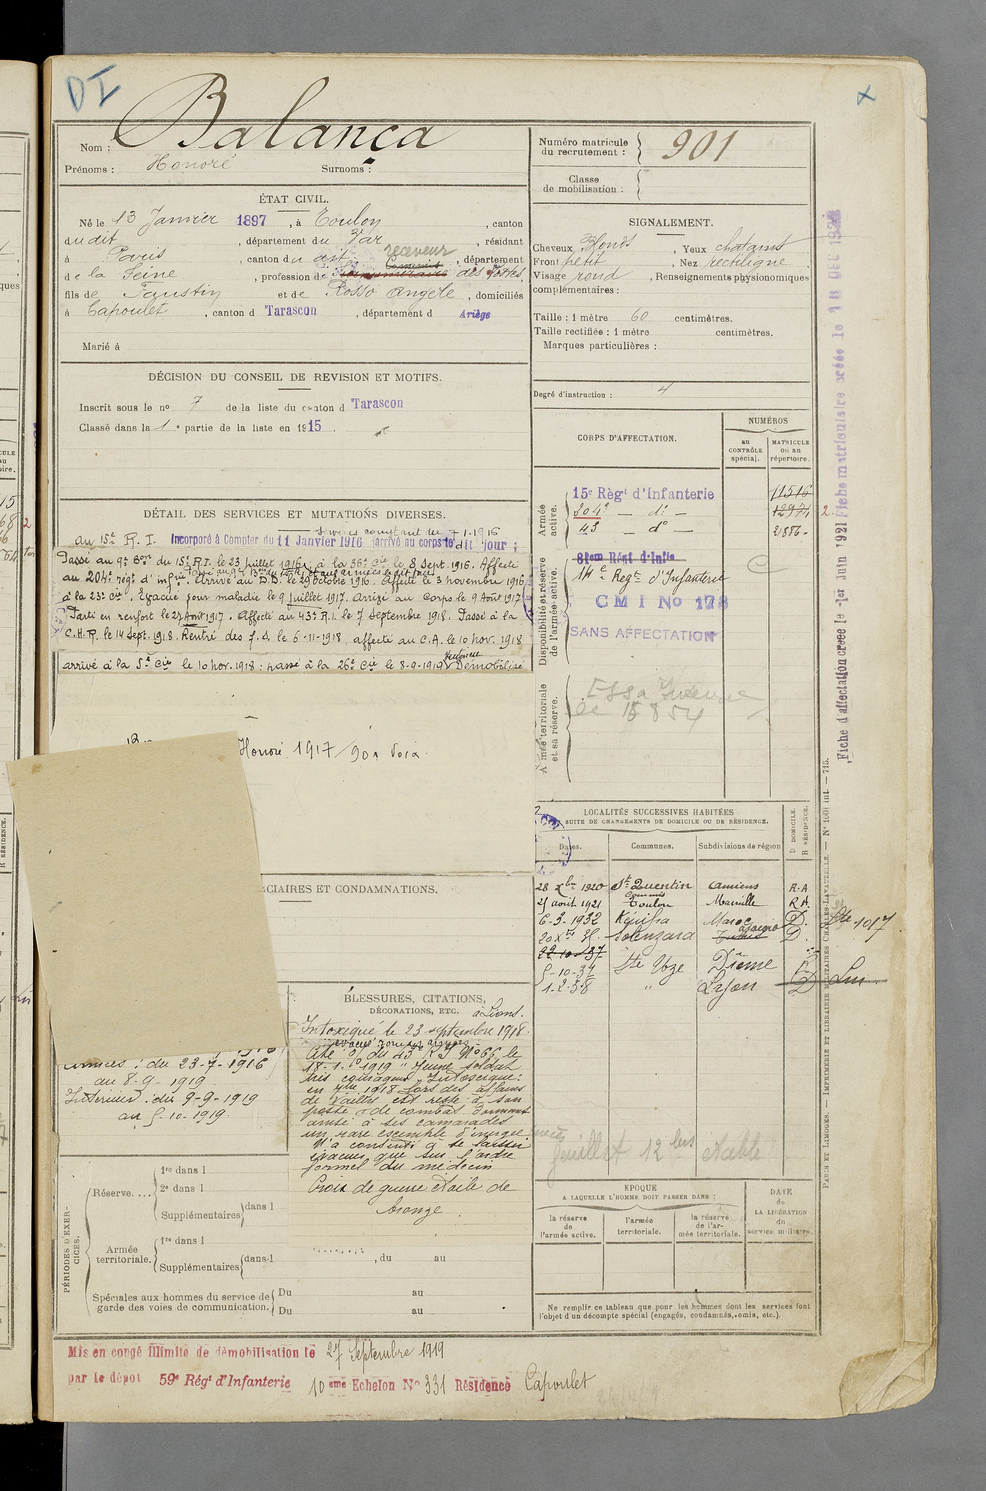 DI
Nom : Balança
Prénoms : Honoré Surnoms :
Numéro matricule du recrutement : 901
Classe de mobilisation :
ÉTAT CIVIL.
Né le 13 Janvier 1897, à Toulon, canton
du dit, département du Var, résidant
à Paris, canton du dit, département
receveur
de la Seine, profession de Commis des Postes,
fils de Faustin et de Rosso Angèle, domiciliés
à Capoulet, canton d Tarascon, département d Ariège
Marié à
SIGNALEMENT.
Cheveux blonds, Yeux chatains
Front petit, Nez rectiligne,
Visage rond, Renseignements physionomiques
complémentaires :
Taille : 1 mètre 60 centimètres.
Taille rectifiée : 1 mètre centimètres.
Marques particulières :
Degré d'instruction : 4
DÉCISION DU CONSEIL DE REVISION ET MOTIFS.
Inscrit sous le no 7 de la liste du canton d Tarascon
Classé dans la 1e partie de la liste en 1915
DÉTAIL DES SERVICES ET MUTATIONS DIVERSES.
Services comptant du 7-1-1916
au 15e R. I. Incorporé à Compter du 11 Janvier 1916 arrivé au corps le dit jour ;
Passé au 9e Bon du 15e R.I. le 23 juillet 1916, à la 36e Cie le 8 Sept. 1916. Affecté
au 204e régt d'infie. Arrivé au D.D. le 29 octobre 1916. Affecté le 3 novembre 1916
à la 23e Cie. Evacué pour maladie le 9 juillet 1917. Arrivé au Corps le 9 Août 1917
Parti en renfort le 27 Août 1917. Affecté au 43e R.I. le 7 Septembre 1918. Passé à la
C.H.R. le 14 Sept. 1918. Rentré des 7.J. le 6-11-1918, affecté au C.A. le 10 nov. 1918
arrivé à la 5e Cie le 10 nov. 1918 ; passé à la 26e Cie le 8-9-1919 Démobilisé
Honoré 1917/901
CORPS D'AFFECTATION.
NUMÉROS
au CONTRÔLE spécial.
MATRICULE ou au répertoire.
Armée active.
15e Régt d'Infanterie 11516
204e - do - 12974
43 do - 21886
Disponibilité et réserve de l'armée active.
81eme Régt d'Infie
14e Régt d'Infanterie
C M I No 178
SANS AFFECTATION
Armée territoriale et sa réserve.
LOCALITÉS SUCCESSIVES HABITÉES
PAR SUITE DE CHANGEMENTS DE DOMICILE OU DE RÉSIDENCE.
Dates. Communes. Subdivisions de région D DOMICILE. R RÉSIDENCE.
28 Xbre 1920 St Quentin Amiens R.A
Commis
21 août 1921 Toulon Marseille R A.
6-3-1932 Kénifra Maroc D.
Solenzara Ajaccio D.
22-10-37
5-10-37 Dième
1-2-38 " Lyon D
JUDICIAIRES ET CONDAMNATIONS.
BLESSURES, CITATIONS,
DÉCORATIONS, ETC.
Intoxiqué le 23 septembre 1918
Cité O. du 43e R I No 66 le
18-1-1919 "Jeune soldat
très courageux. Intoxiqué
en 7bre 1918 lors des affaires
de Vailly est resté à son
poste de combat donnant
ainsi à ses camarades
un rare exemple d'énergie
N'a consenti à se laisser
évacuer que sur l'ordre
formel du médecin
Croix de guerre étoile de
bronze.
Armées : du 23-7-1916
au 8-9-1919
Intérieur : du 9-9-1919
au 5-10-1919.
PÉRIODES D'EXERCICES.
Réserve.... 1re dans l
2e dans l
Supplémentaires dans l
Armée territoriale. 1re dans l
Supplémentaires dans l , du au
Spéciales aux hommes du service de garde des voies de communication. Du au
Du au
feuillet 12 bis
ÉPOQUE
A LAQUELLE L'HOMME DOIT PASSER DANS :
la réserve de l'armée active.
l'armée territoriale.
la réserve de l'armée territoriale.
DATE de LA LIBÉRATION du service militaire.
Ne remplir ce tableau que pour les hommes dont les services font
l'objet d'un décompte spécial (engagés, condamnés, omis, etc.).
Mis en congé illimité de démobilisation le 27 Septembre 1919
par le dépôt 59e Régt d'Infanterie 10eme Echelon No 331 Résidence Capoulet
PARIS ET LIMOGES. — IMPRIMERIE ET LIBRAIRIE MILITAIRES CHARLES-LAVAUZELLE.